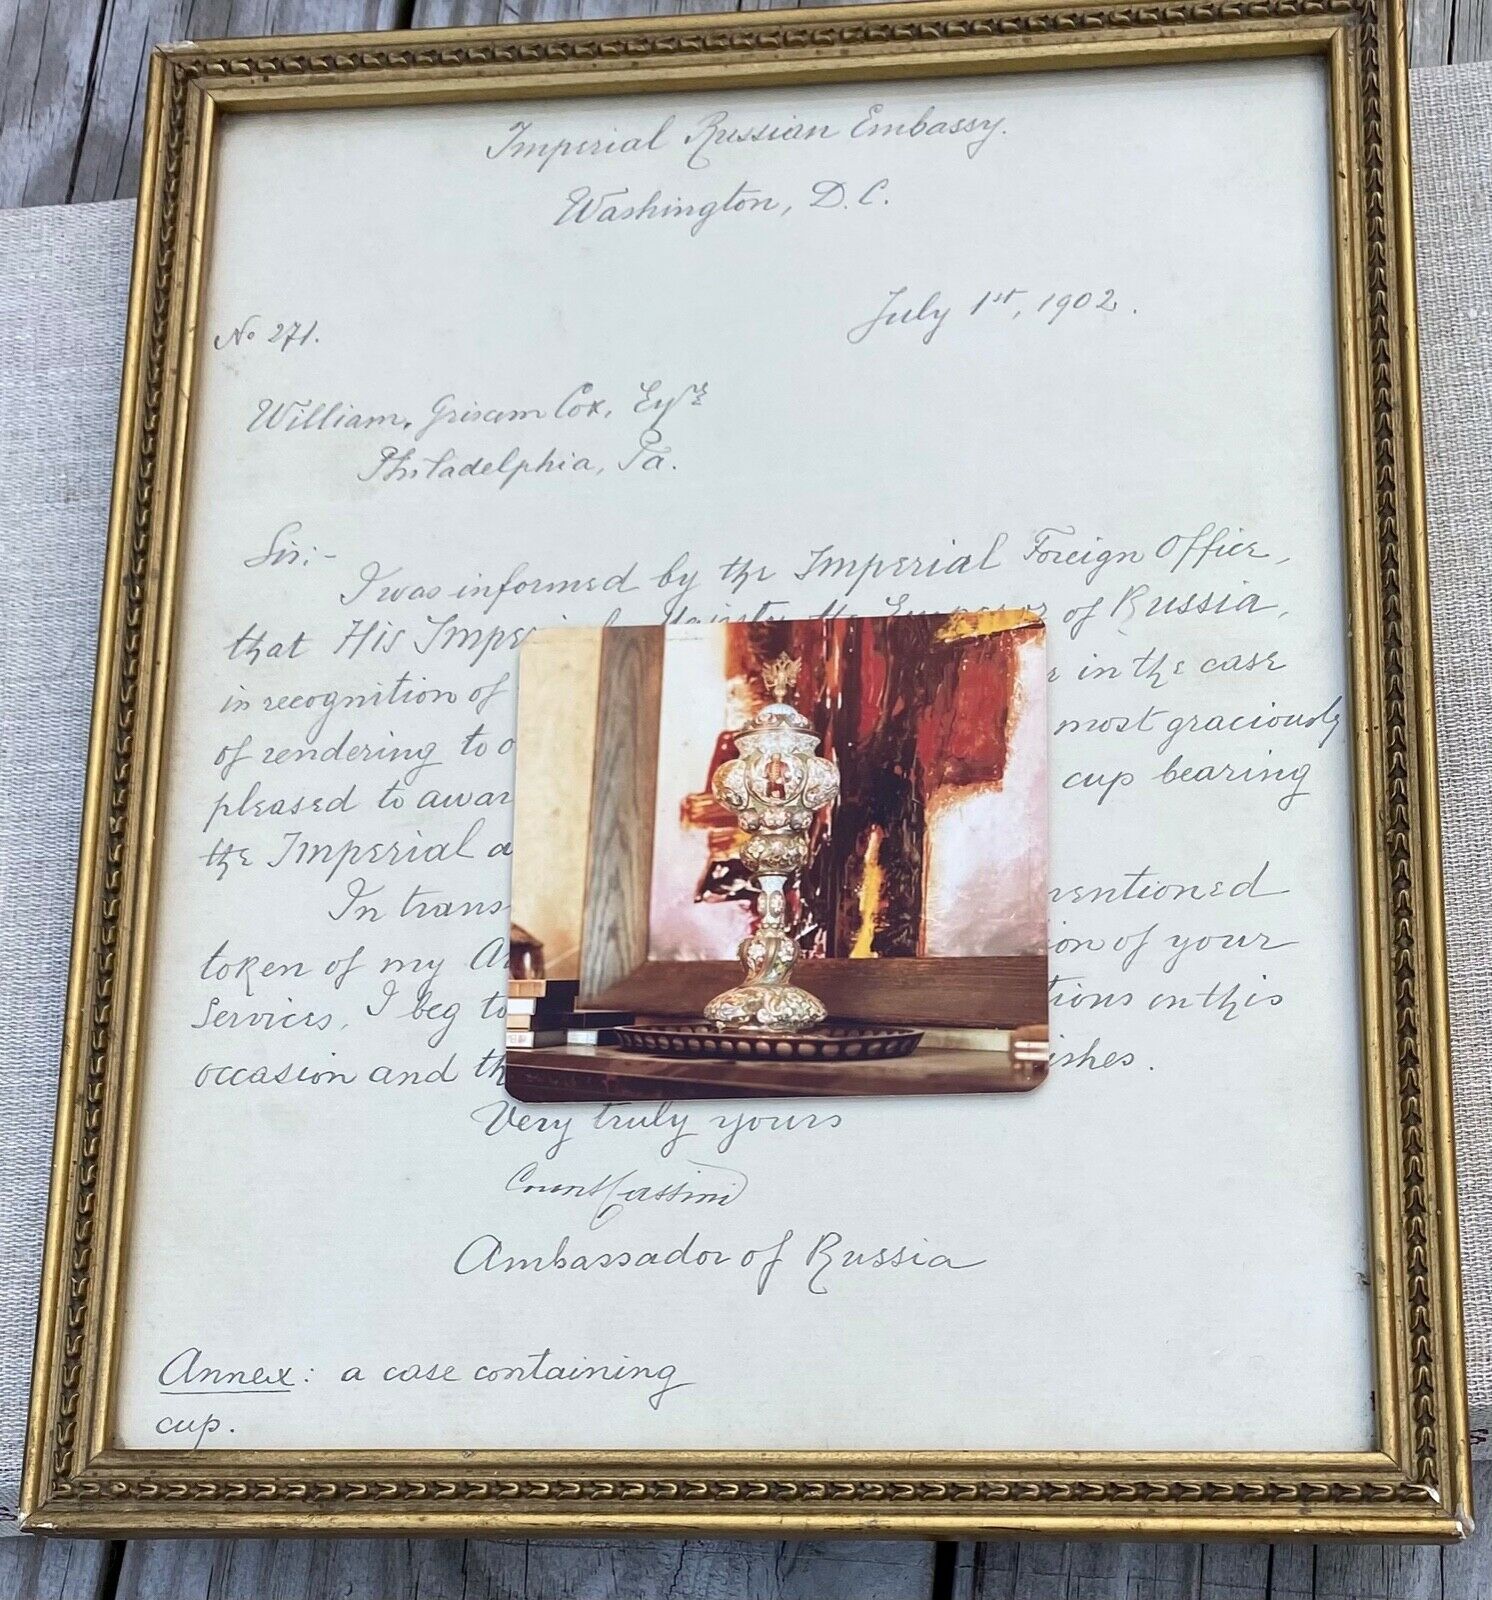 Imperial Russian Embassy.
Washington, D.C.
July 1st, 1902.
No 271.
William, Grisam Cox, Esqre
Philadelphia, Pa.
Sir:-
I was informed by the Imperial Foreign Office,
that His Imperial Majesty the Emperor of Russia,
in recognition of in the case
of rendering to most graciously
pleased to cup bearing
the Imperial
In mentioned
token of my of your
Services, I beg to in this
occasion and wishes.
Very truly yours
Count Cassini
Ambassador of Russia
Annex: a case containing
cup.